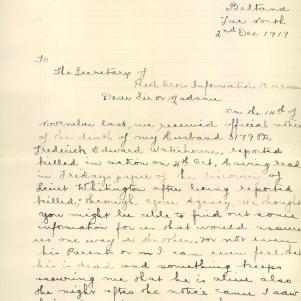 Beltana
Far North
2nd Dec 1917
To
The Secretary of
Red Cross Information Bureau
Dear Sir or Madame
On the 14th of
November last, we received official notice
of the death of my Husband 3179 Pte
Frederick Edward Waterhouse, reported
killed in action on 4th Oct, having read
in Fridays paper of the discovery of
Lieut Whitington after being reported
killed; through your Agency we thought
you might be able to find out some
information for us that would assure
us one way or the other, for not even
his Parents or I can ever feel that
he is dead and something keeps
assuring me that he is alive also
the night after the notice came I saw